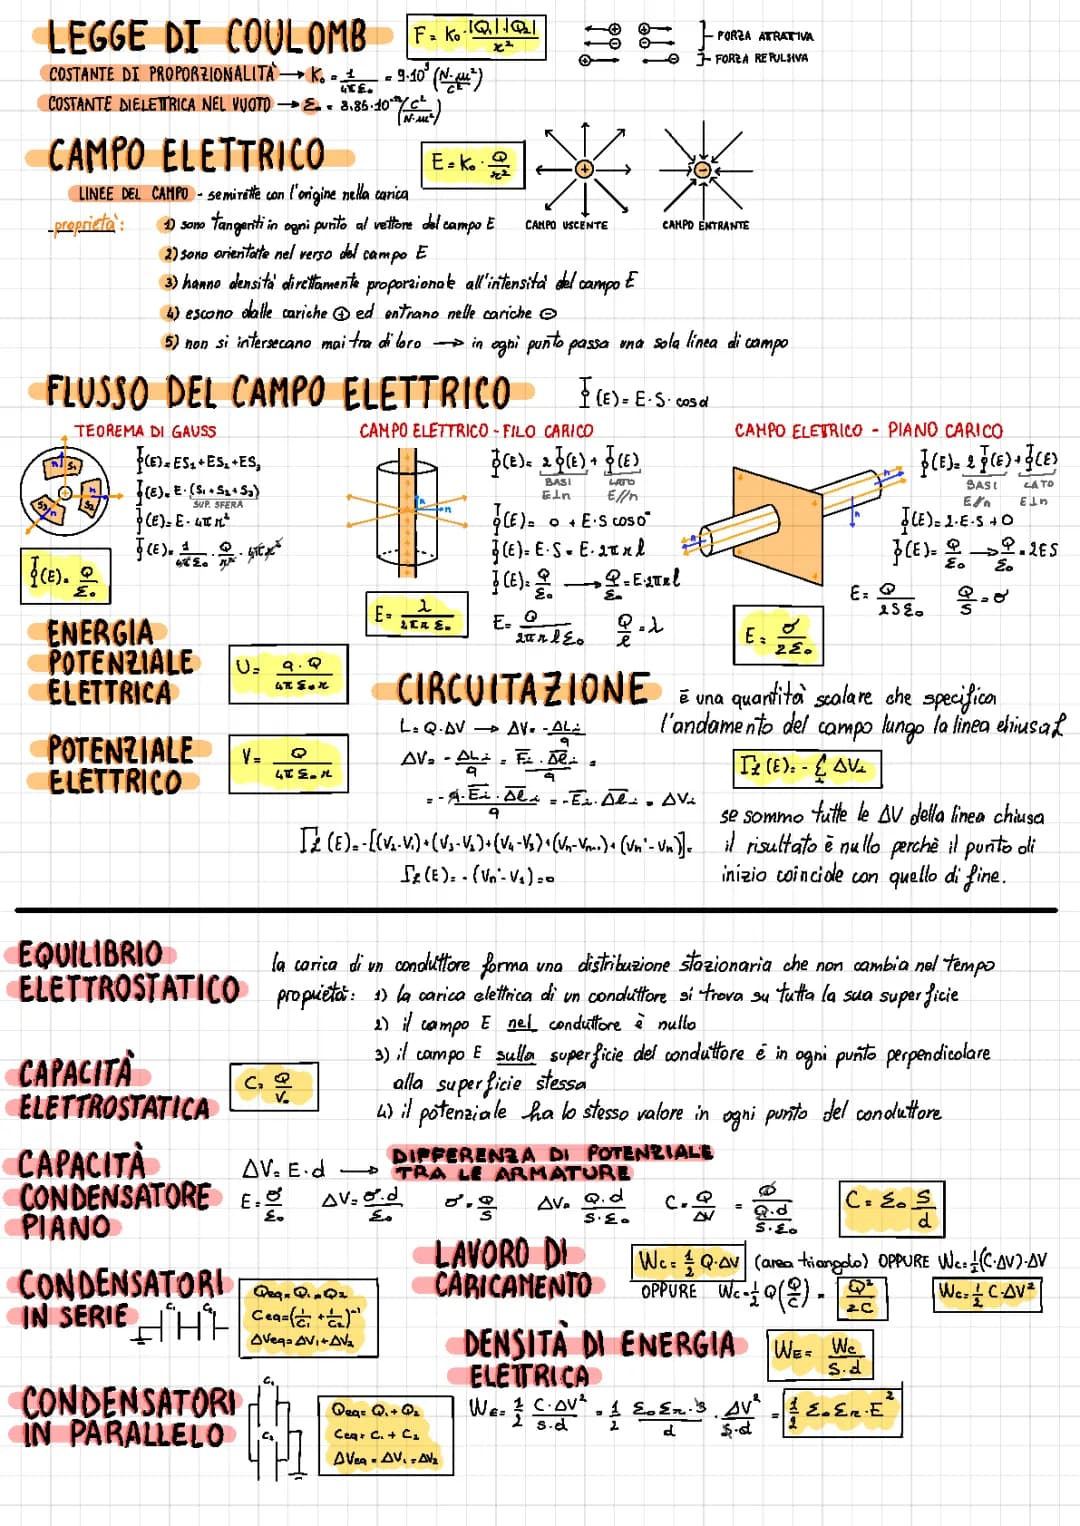 LEGGE DI COULOMB
F = K₀ · |Q₁|·|Q₂| / r²
FORZA ATTRATIVA
FORZA REPULSIVA
COSTANTE DI PROPORZIONALITÀ → K₀ = 1/4πε₀ = 9·10⁹ (N·m²/C²)
COSTANTE DIELETTRICA NEL VUOTO → ε₀ = 8,85·10⁻¹² (C²/N·m²)
CAMPO ELETTRICO
E = K₀ · Q/r²
LINEE DEL CAMPO - semirette con l'origine nella carica
CAMPO USCENTE
CAMPO ENTRANTE
proprietà:
1) sono tangenti in ogni punto al vettore del campo E
2) sono orientate nel verso del campo E
3) hanno densità direttamente proporzionale all'intensità del campo E
4) escono dalle cariche ⊕ ed entrano nelle cariche ⊖
5) non si intersecano mai tra di loro → in ogni punto passa una sola linea di campo
FLUSSO DEL CAMPO ELETTRICO
Φ(E) = E·S·cosα
TEOREMA DI GAUSS
Φ(E) = ES₁+ES₂+ES₃
Φ(E) = E·(S₁+S₂+S₃)
SUP. SFERA
Φ(E) = E·4πr²
Φ(E) = 1/4πε₀ · Q/r² · 4πr²
Φ(E) = Q/ε₀
CAMPO ELETTRICO - FILO CARICO
Φ(E) = 2Φ(E) + Φ(E)
BASI LATO
E⊥n E//n
Φ(E) = 0 + E·S cos0°
Φ(E) = E·S = E·2πrl
Φ(E) = Q/ε₀ → Q/ε₀ = E·2πrl
E = Q/2πrlε₀ Q/l = λ
E = λ/2πrε₀
CAMPO ELETTRICO - PIANO CARICO
Φ(E) = 2Φ(E) + Φ(E)
BASI LATO
E//n E⊥n
Φ(E) = 2·E·S + 0
Φ(E) = Q/ε₀ → Q/ε₀ = 2ES
E = Q/2Sε₀ Q/S = σ
E = σ/2ε₀
ENERGIA
POTENZIALE
ELETTRICA
U = q·Q/4πε₀r
POTENZIALE
ELETTRICO
V = Q/4πε₀r
CIRCUITAZIONE
è una quantità scalare che specifica
l'andamento del campo lungo la linea chiusa L
L = Q·ΔV → ΔV = -ΔLi/q
ΔV = -ΔLi/q = Fi·Δli/q =
= -q·Ei·Δli/q = -Ei·Δli = ΔVi
Γℒ(E) = -Σ ΔVi
i
se sommo tutte le ΔV della linea chiusa
il risultato è nullo perchè il punto di
inizio coincide con quello di fine.
Γℒ(E) = -[(V₂-V₁)+(V₃-V₂)+(V₄-V₃)+(Vn-Vn-₁)+(Vn'-Vn)] =
Γℒ(E) = -(Vn'-V₁) = 0
EQUILIBRIO
ELETTROSTATICO
la carica di un conduttore forma una distribuzione stazionaria che non cambia nel tempo
proprietà: 1) la carica elettrica di un conduttore si trova su tutta la sua superficie
2) il campo E nel conduttore è nullo
3) il campo E sulla superficie del conduttore è in ogni punto perpendicolare
alla superficie stessa
4) il potenziale ha lo stesso valore in ogni punto del conduttore
CAPACITÀ
ELETTROSTATICA
C = Q/V₀
CAPACITÀ
CONDENSATORE
PIANO
ΔV = E·d →
DIFFERENZA DI POTENZIALE
TRA LE ARMATURE
E = σ/ε₀ ΔV = σ·d/ε₀ σ = Q/S ΔV = Q·d/S·ε₀ C = Q/ΔV = Q/(Q·d/S·ε₀)
C = ε₀ S/d
LAVORO DI
CARICAMENTO
Wc = ½ Q·ΔV (area triangolo) OPPURE Wc = ½(C·ΔV)·ΔV
OPPURE Wc = ½ Q(Q/C) = Q²/2C
Wc = ½ C·ΔV²
CONDENSATORI
IN SERIE
C₁ C₂
Qeq = Q₁ = Q₂
Ceq = (1/C₁ + 1/C₂)⁻¹
ΔVeq = ΔV₁+ΔV₂
DENSITÀ DI ENERGIA
ELETTRICA
WE = Wc/S·d
WE = ½ C·ΔV²/S·d = ½ ε₀εr·S/d · ΔV²/S·d = ½ ε₀εr·E²
CONDENSATORI
IN PARALLELO
C₁
C₂
Qeq = Q₁+Q₂
Ceq = C₁+C₂
ΔVeq = ΔV₁ = ΔV₂